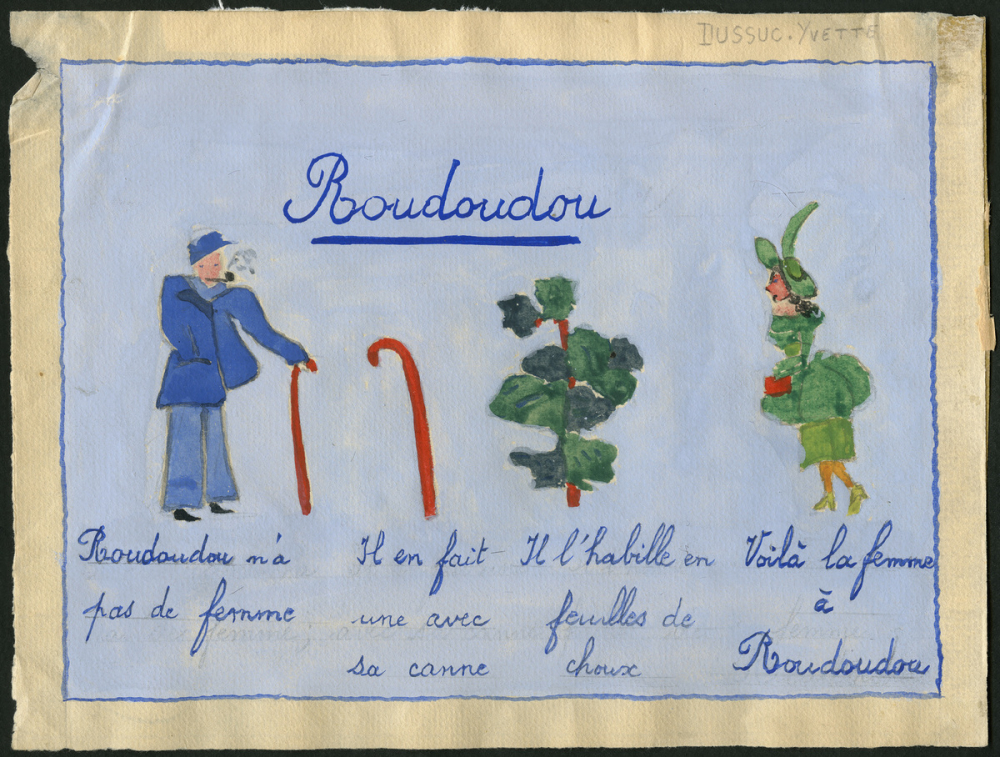 DUSSUC.YVETTE
Roudoudou
Roudoudou n'a
pas de femme
Il en fait
une avec
sa canne
Il l'habille en
feuilles de
choux
Voilà la femme
à
Roudoudou